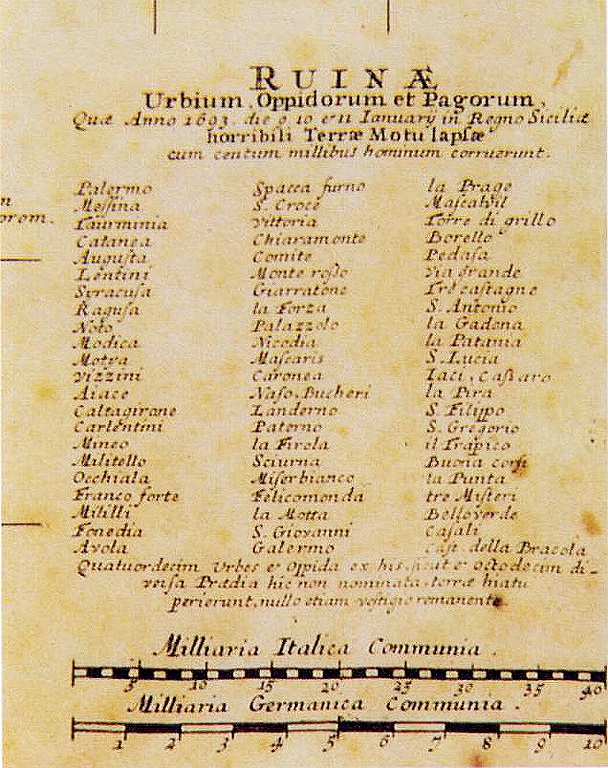 RUINÆ
Urbium, Oppidorum et Pagorum,
Quæ Anno 1693. die 9 10 et 11 Ianuarÿ in Regno Siciliæ
horribili Terræ Motu lapſæ
cum centum millibus hominum corruerunt.
orem.
Palermo
Meſſina
Taurminia
Catanea
Auguſta
Lentini
Syracuſa
Raguſa
Noto
Modica
Motya
Vizzini
Aiace
Caltagirone
Carlentini
Mineo
Militello
Occhiala
Franco forte
Mililli
Fenedia
Avola
Spacca furno
S. Croce
Vittoria
Chiaramonte
Comite
Monte roſſo
Giarratone
la Forza
Palazzolo
Nicodia
Maſcaris
Caronea
Naſo. Bucheri
Landerno
Paterno
la Firola
Sciurna
Miſerbianco
Felicomonda
la Motta
S. Giovanni
Galermo
la Prage
Maſcalvil
Torre di grillo
Borello
Pedaſa
Via grande
Tre caſtagne
S. Antonio
la Gadena
la Patania
S. Lucia
Iaci, Caſtaro
la Pira
S. Filippo
S. Gregorio
il Trapico
Buona corſi
la Punta
tre Miſteri
Belloverde
Caſali
Caſt. della Bracola
Quatuordecim Urbes et Oppida ex his, ſicut et octodecim di-
verſa Prædia hic non nominata, terræ hiatu
perierunt, nullo etiam veſtigio remanente.
Milliaria Italica Communia.
5 10 15 20 25 30 35 40
Milliaria Germanica Communia.
1 2 3 4 5 6 7 8 9 10